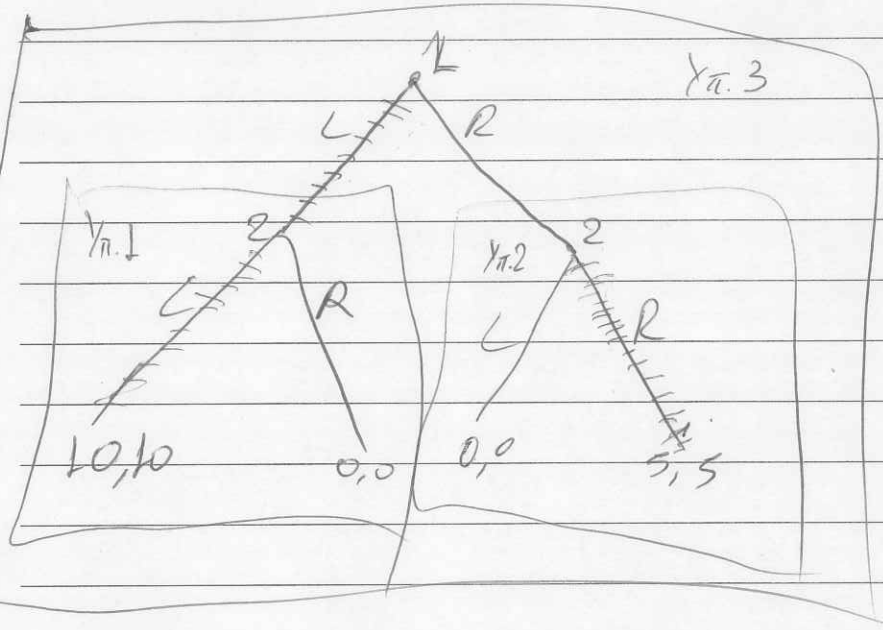 1
Υπ.3
L R
2 2
Υπ.1 Υπ.2
L R L R
10,10 0,0 0,0 5,5